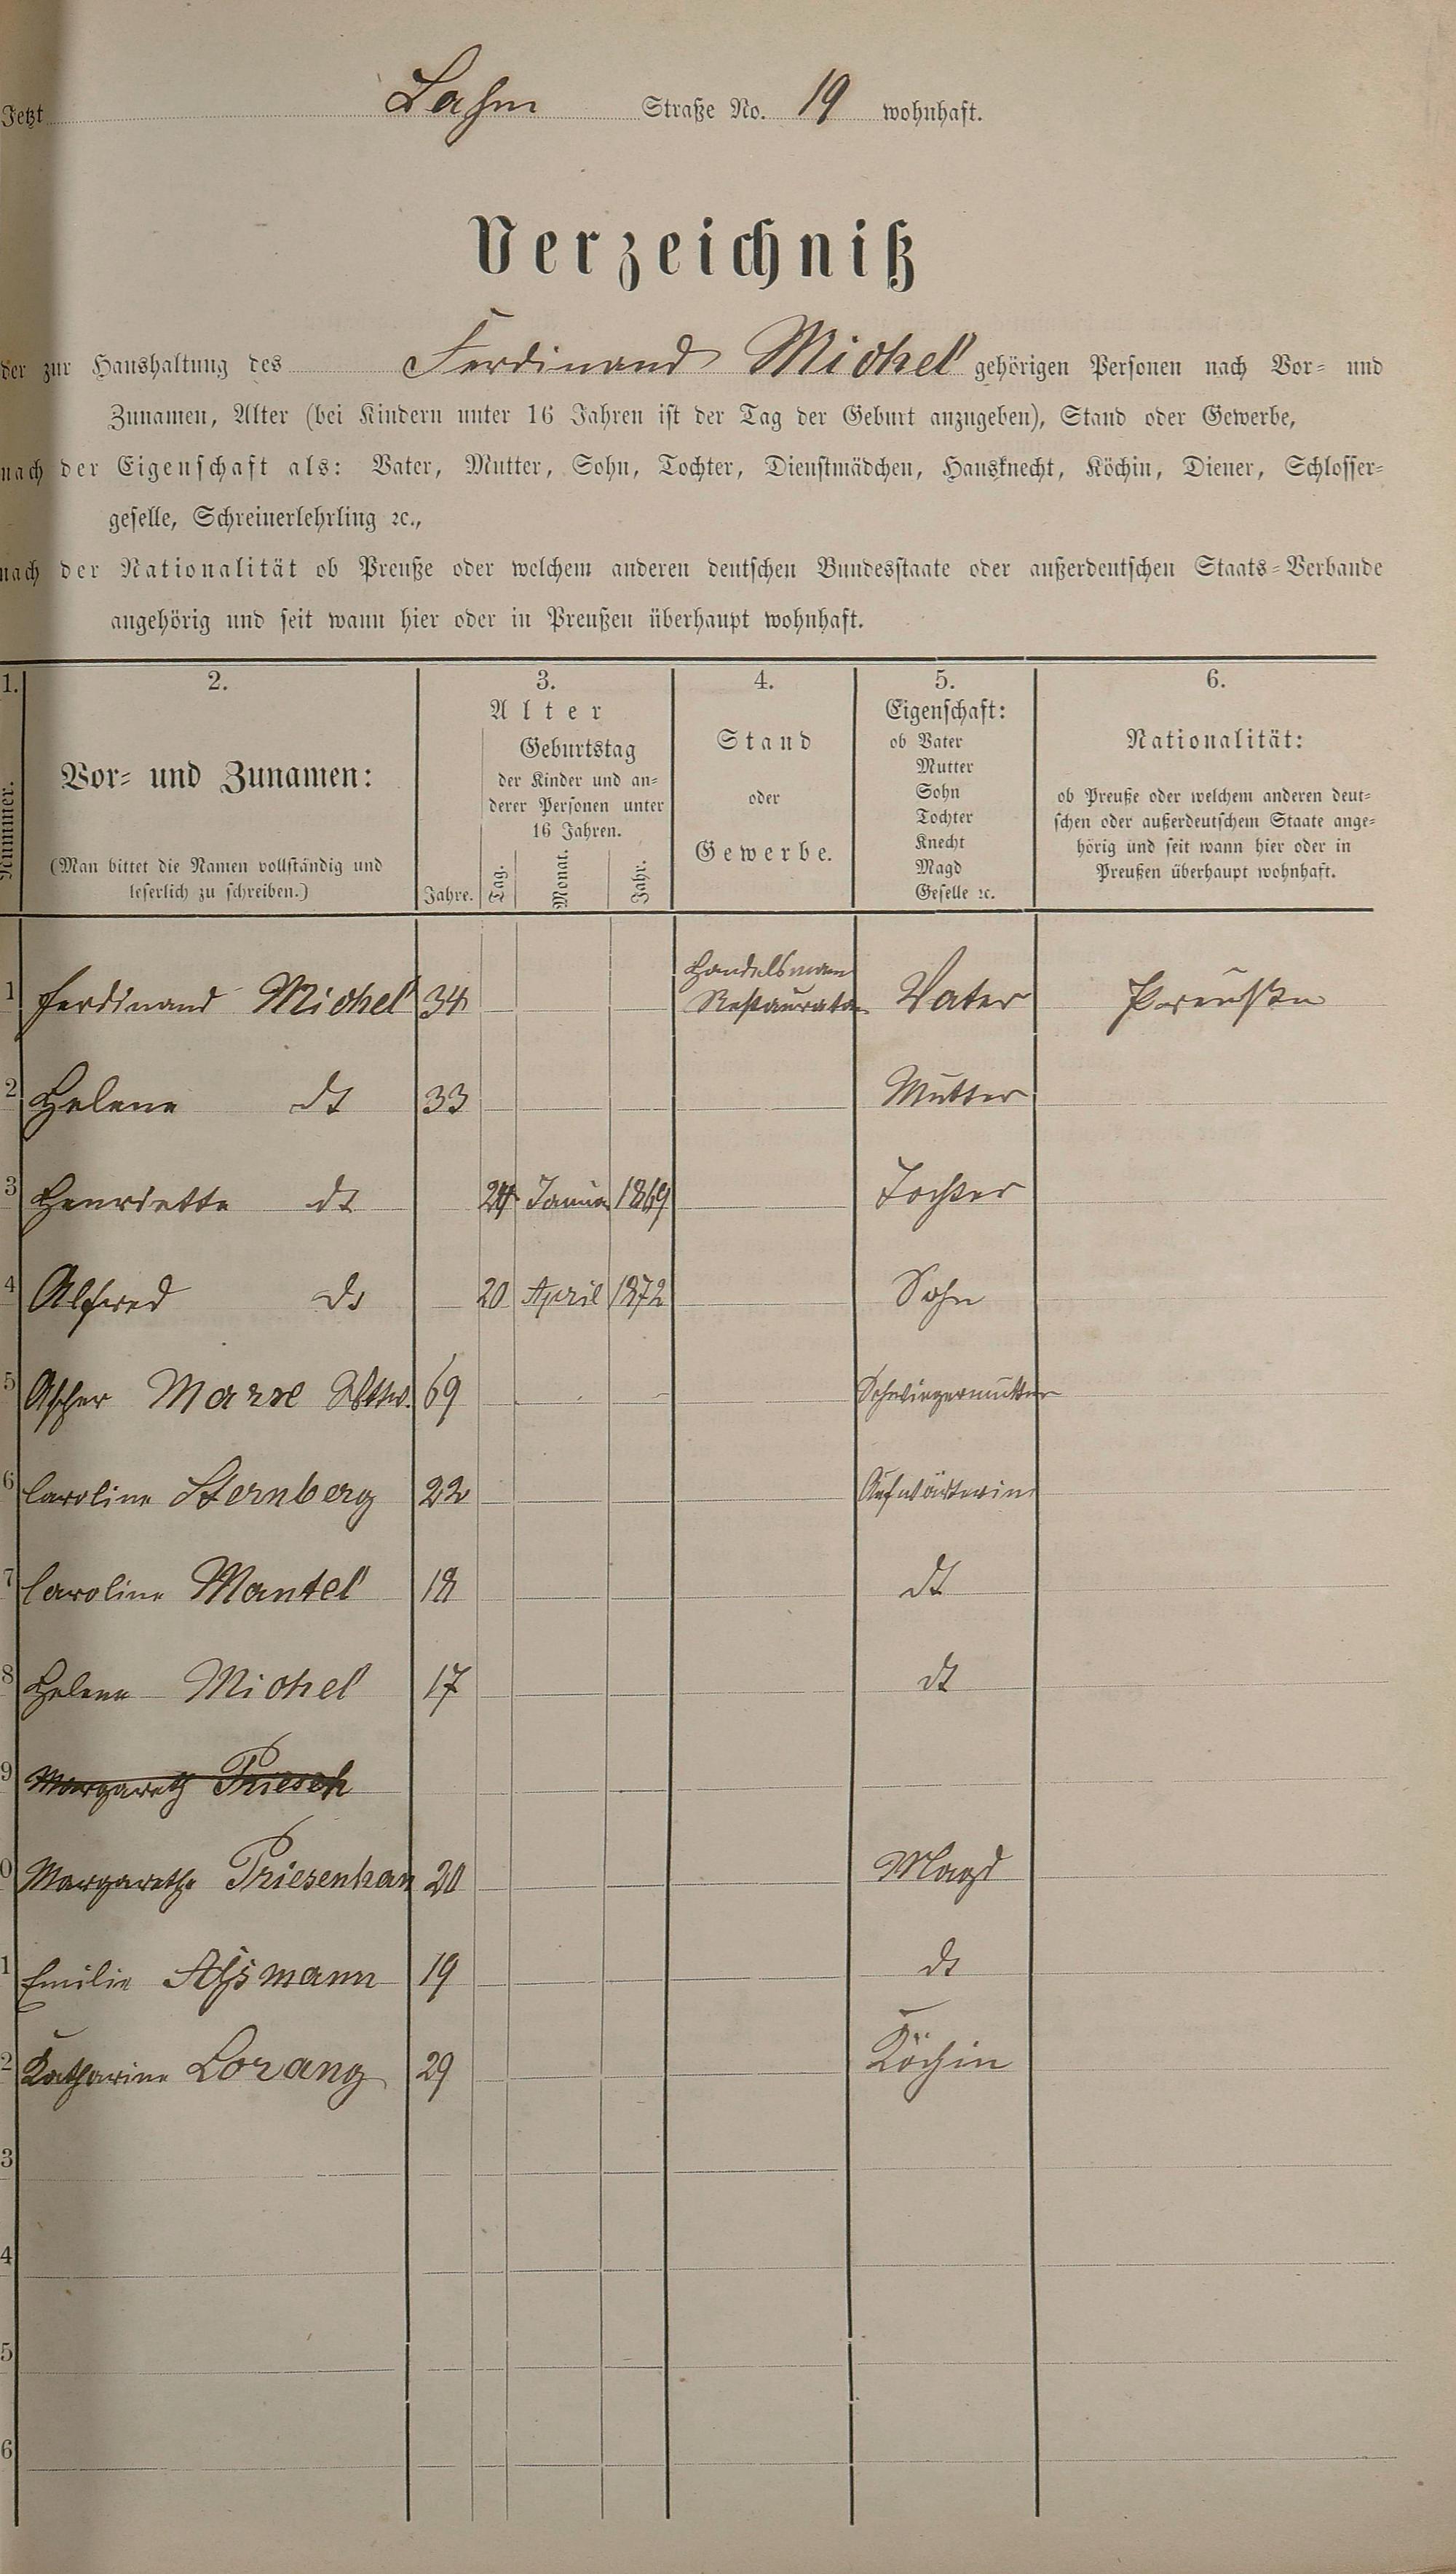 Jetzt Lahn Straße No. 19 wohnhaft.
Verzeichniß
der zur Haushaltung des Ferdinand Michel gehörigen Personen nach Vor- und
Zunamen, Alter (bei Kindern unter 16 Jahren ist der Tag der Geburt anzugeben), Stand oder Gewerbe,
nach der Eigenschaft als: Vater, Mutter, Sohn, Tochter, Dienstmädchen, Hausknecht, Köchin, Diener, Schlosser-
geselle, Schreinerlehrling ꝛc.,
nach der Nationalität ob Preuße oder welchem anderen deutschen Bundesstaate oder außerdeutschen Staats-Verbande
angehörig und seit wann hier oder in Preußen überhaupt wohnhaft.
1.
Nummer.
2.
Vor- und Zunamen:
(Man bittet die Namen vollständig und
leserlich zu schreiben.)
3.
Alter
Jahre.
Geburtstag
der Kinder und an-
derer Personen unter
16 Jahren.
Tag. Monat. Jahr.
4.
Stand
oder
Gewerbe.
5.
Eigenschaft:
ob Vater
Mutter
Sohn
Tochter
Knecht
Magd
Geselle ꝛc.
6.
Nationalität:
ob Preuße oder welchem anderen deut-
schen oder außerdeutschem Staate ange-
hörig und seit wann hier oder in
Preußen überhaupt wohnhaft.
Handelsmann
1 Ferdinand Michel 34 Restaurateur Vater Preußen
2 Helene dt 33 Mutter
3 Henriette dt 24 Januar 1869 Tochter
4 Alfred dt 20 April 1872 Sohn
5 Ascher Marx Wttw. 69 Schwiegermutter
6 Caroline Sternberg 22 Aufwärterin
7 Caroline Mantel 18 dt
8 Helene Michel 17 dt
9 Margareth Priesch
0 Margarethe Priesenhan 20 Magd
1 Emilie Assmann 19 dt
2 Katharine Lorang 29 Köchin
3
4
5
6